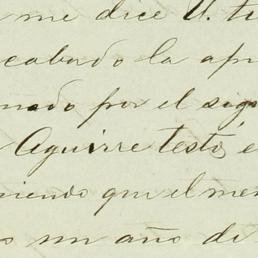 me dice U. t
cabado la apr
nado por el sig
Aguirre testó, e
niendo que el mer
o un año de